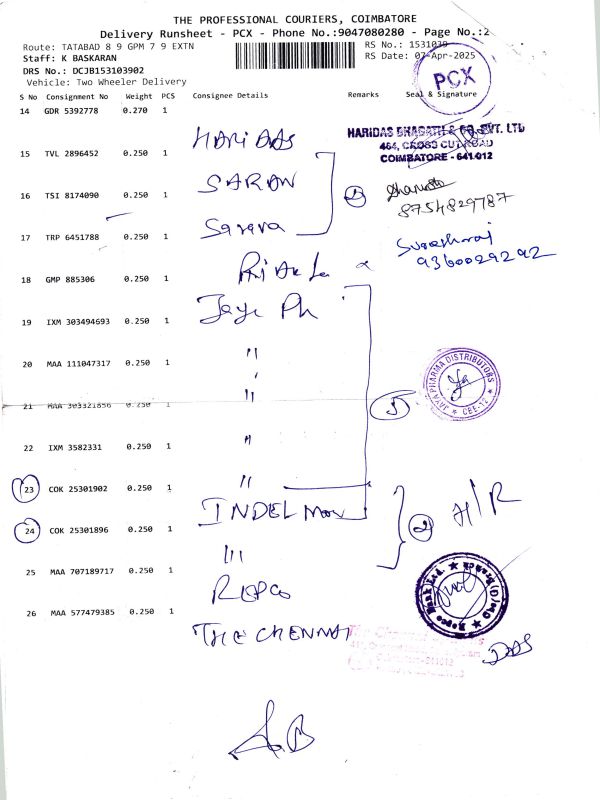 THE PROFESSIONAL COURIERS, COIMBATORE
Delivery Runsheet - PCX - Phone No.:9047080280 - Page No.:2
Route: TATABAD 8 9 GPM 7 9 EXTN
RS No.:
Staff: K BASKARAN
RS Date: 07-Apr-2025
DRS No.: DCJB153103902
Vehicle: Two Wheeler Delivery
PCX
S No Consignment No Weight PCS Consignee Details Remarks Seal & Signature
14 GDR 5392778 0.270 1
HARIDAS
HARIDAS BHAGATH & CO. PVT. LTD
464, CROSS CUT ROAD
COIMBATORE - 641 012
15 TVL 2896452 0.250 1
SARAN
8754829787
16 TSI 8174090 0.250 1
Sarava
17 TRP 6451788 0.250 1
9360029292
18 GMP 885306 0.250 1
Jaye Ph
19 IXM 303494693 0.250 1
"
20 MAA 111047317 0.250 1
"
5
JAYA PHARMA DISTRIBUTORS
CBE-12
21 MAA 303321856 0.250 1
"
22 IXM 3582331 0.250 1
"
23 COK 25301902 0.250 1
INDEL Mon
2 H/R
24 COK 25301896 0.250 1
"
25 MAA 707189717 0.250 1
REPCO
Repco Bank Ltd.
26 MAA 577479385 0.250 1
THE CHENNAI
DAS